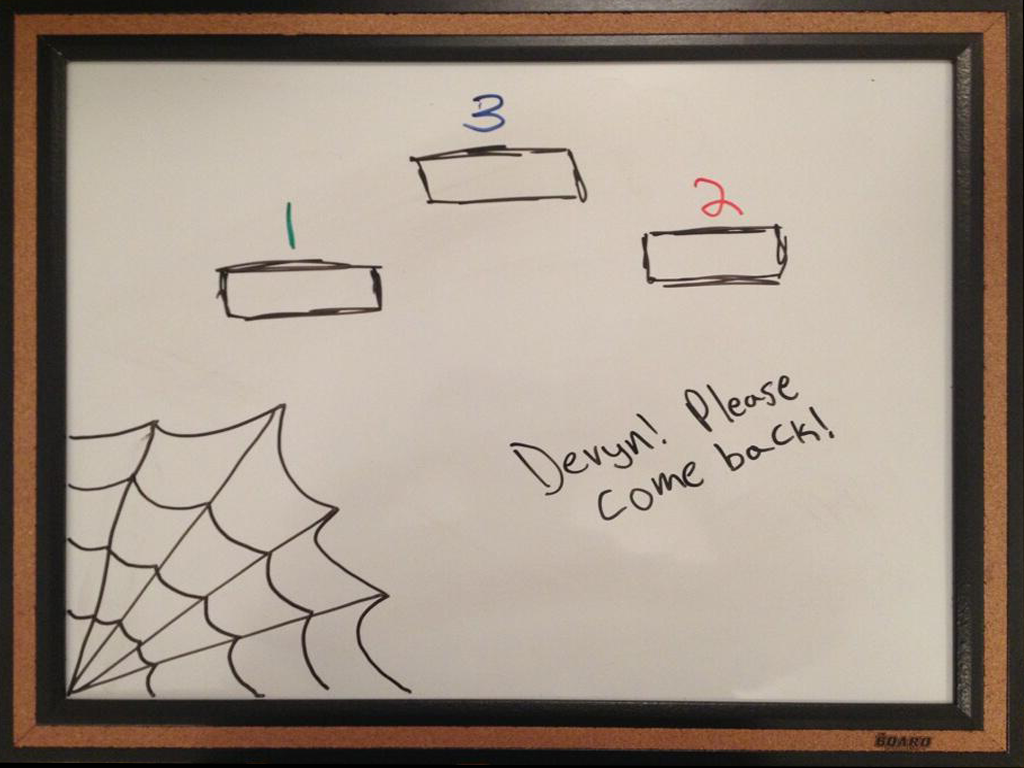 3
1
2
Devyn! Please
come back!
BOARD